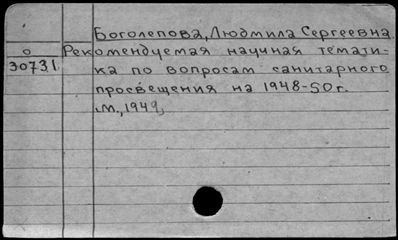 Боголепова, Людмила Сергеевна.
о
Рекомендуемая научная темати-
30731
ка по вопросам санитарного
просвещения на 1948-50 г.
М., 1949,